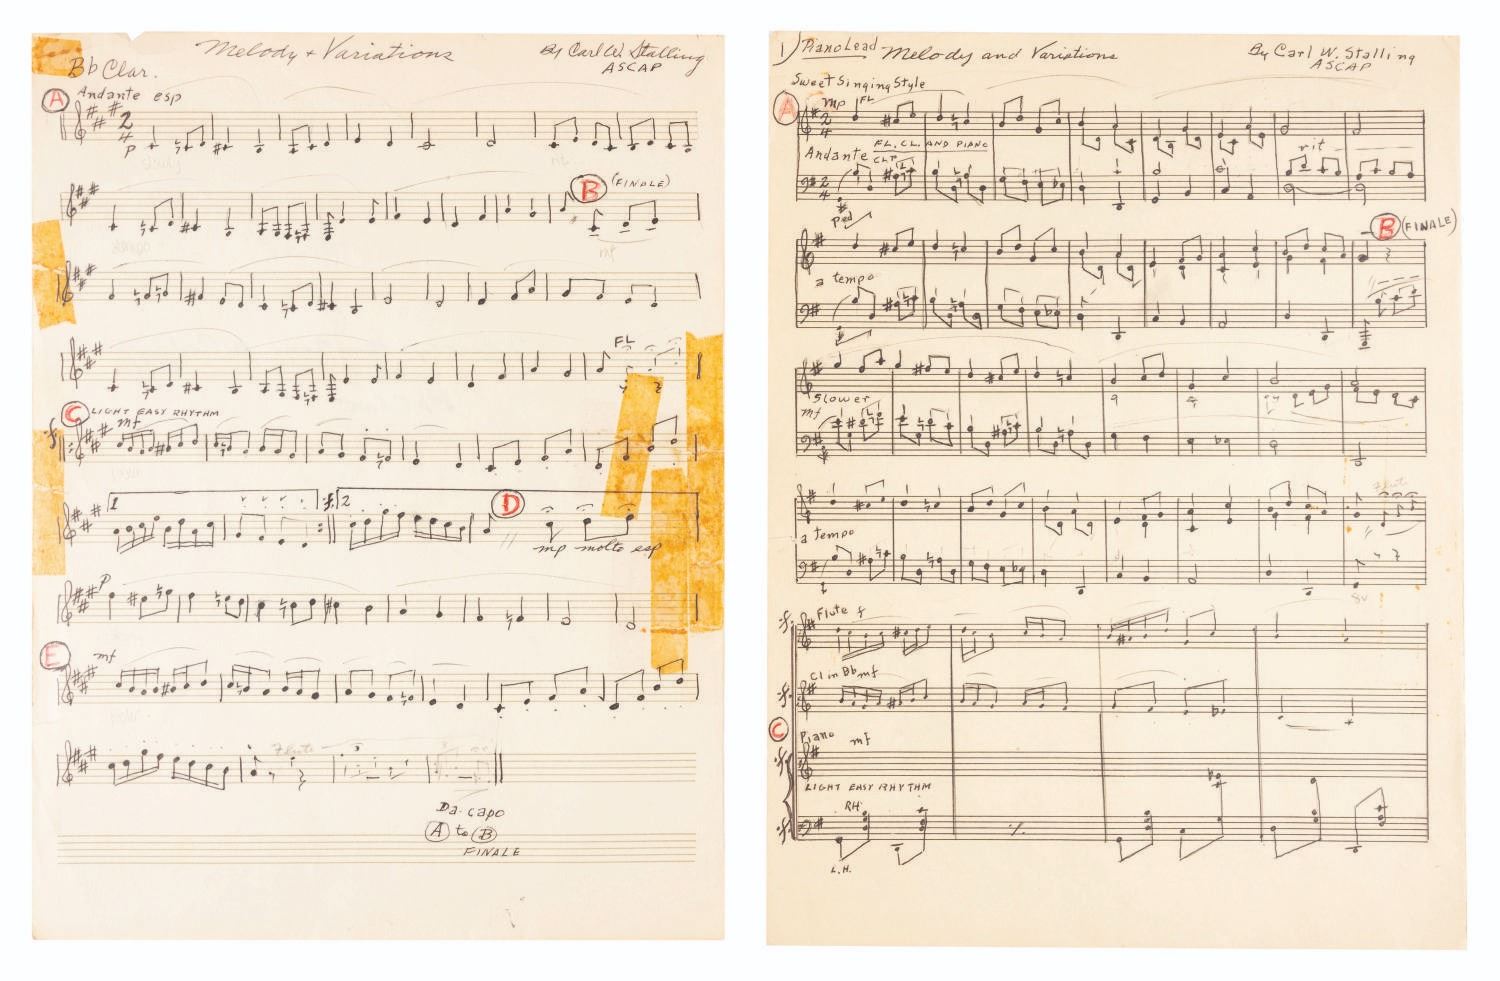 Melody & Variations
By Carl W. Stalling
ASCAP
Bb Clar.
A Andante esp
2
4
p
rit
B (FINALE)
mf
FL
C LIGHT EASY RHYTHM
mf
1 2 D
mp molto esp
p
E mf
Flute
Da. capo
A to B
FINALE
1) Piano Lead - Melody and Variations
By Carl W. Stalling
ASCAP
Sweet Singing Style
A mp FL
2
4
FL, CL. AND PIANO
Andante
rit
2
4
Ped
B (FINALE)
a tempo
Slower
mf
Flute
a tempo
8v
Flute f
Cl in Bb mf
C
Piano mf
LIGHT EASY RHYTHM
RH
L.H.